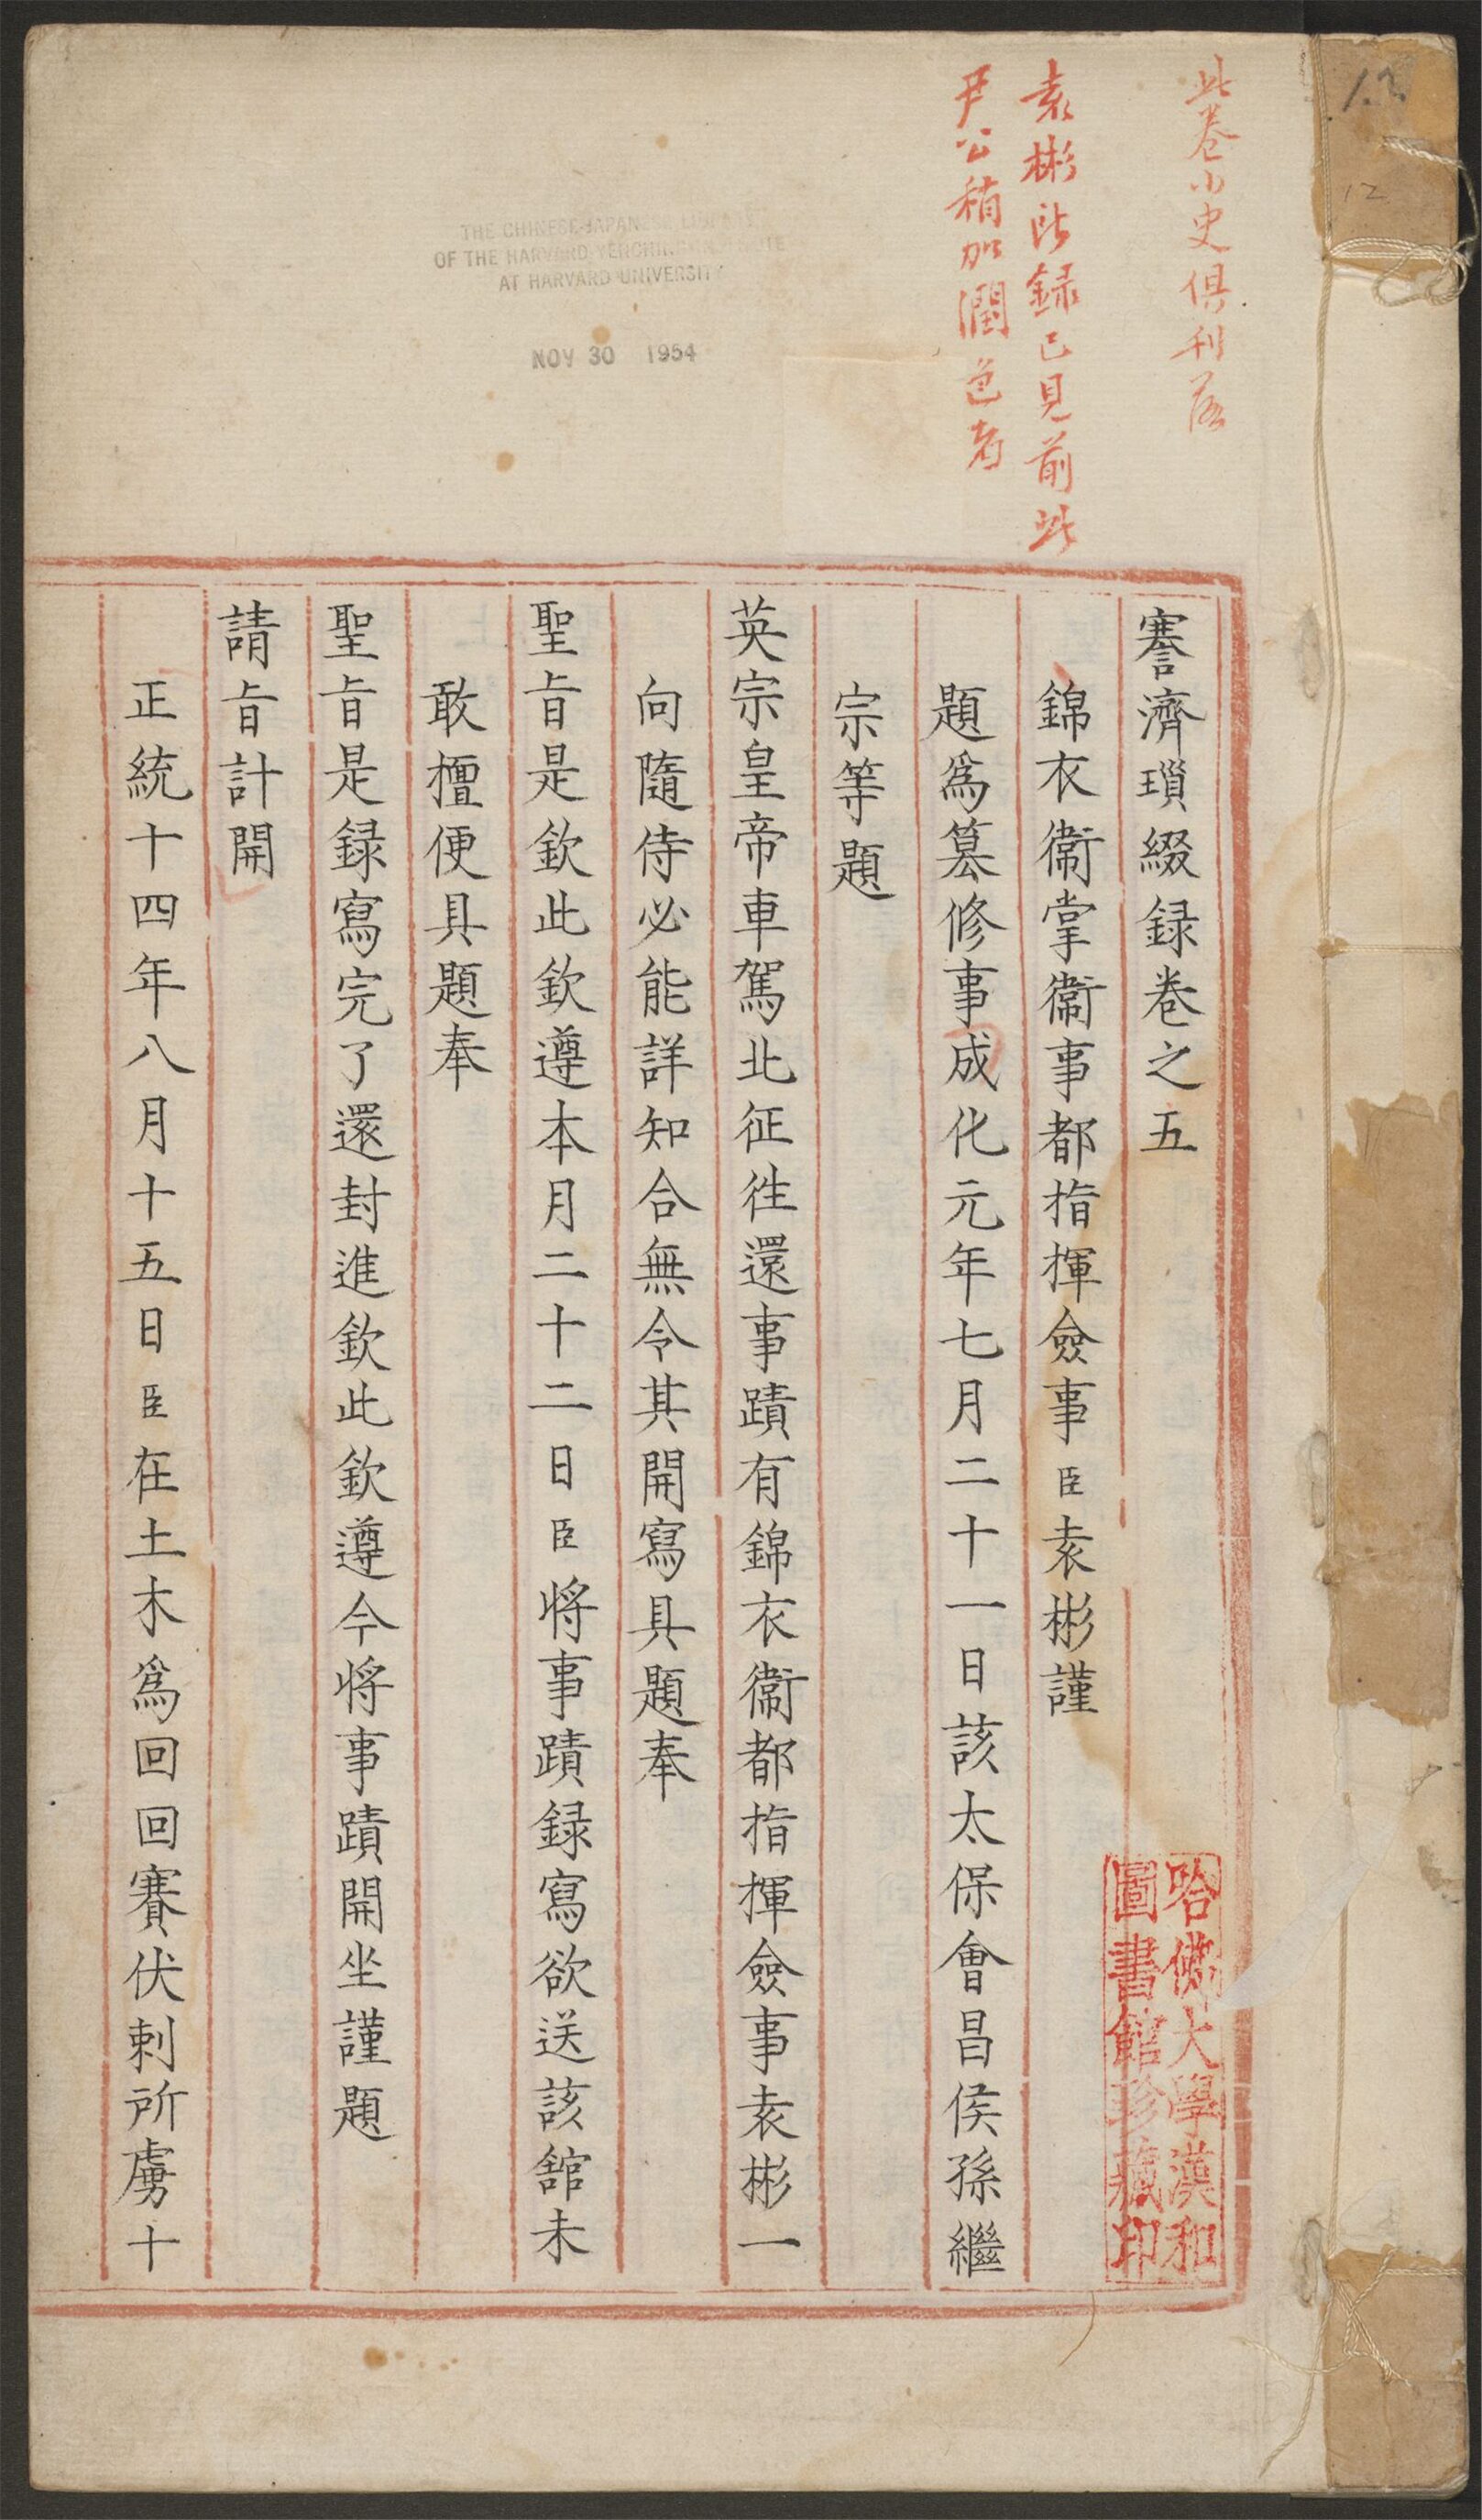 此卷小史俱刊落
袁彬此録已見前此
尹公稍加潤色者
謇濟瑣綴録卷之五
錦衣衞掌衞事都指揮僉事臣袁彬謹
題爲纂修事成化元年七月二十一日該太保會昌侯孫繼
宗等題
英宗皇帝車駕北征徃還事蹟有錦衣衞都指揮僉事袁彬一
向隨侍必能詳知合無令其開寫具題奉
聖旨是欽此欽遵本月二十二日臣將事蹟録寫欲送該舘未
敢擅便具題奉
聖旨是録寫完了還封進欽此欽遵今將事蹟開坐謹題
請旨計開
正統十四年八月十五日臣在土木爲回回賽伏剌所虜十
哈佛大學漢和
圖書館珍藏印
THE CHINESE-JAPANESE LIBRARY
OF THE HARVARD-YENCHING INSTITUTE
AT HARVARD UNIVERSITY
NOV 30 1954
12